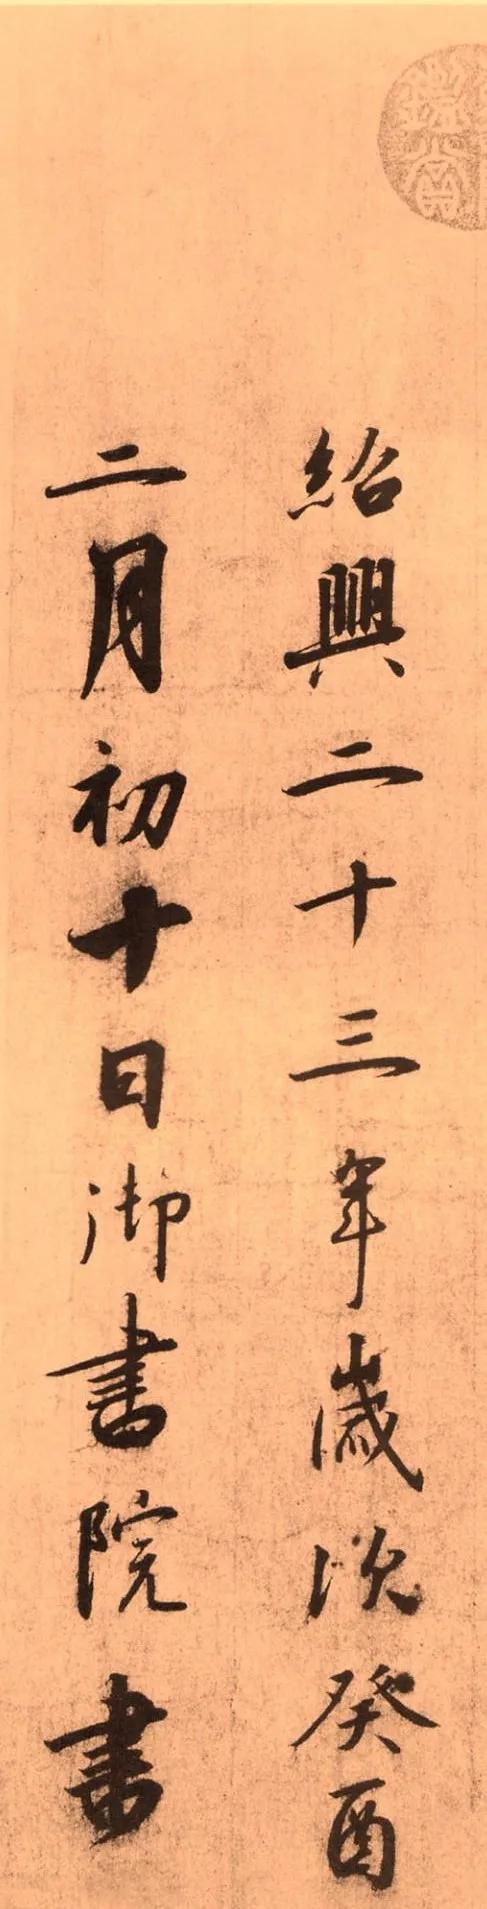 紹興二十三年歲次癸酉
二月初十日御書院書